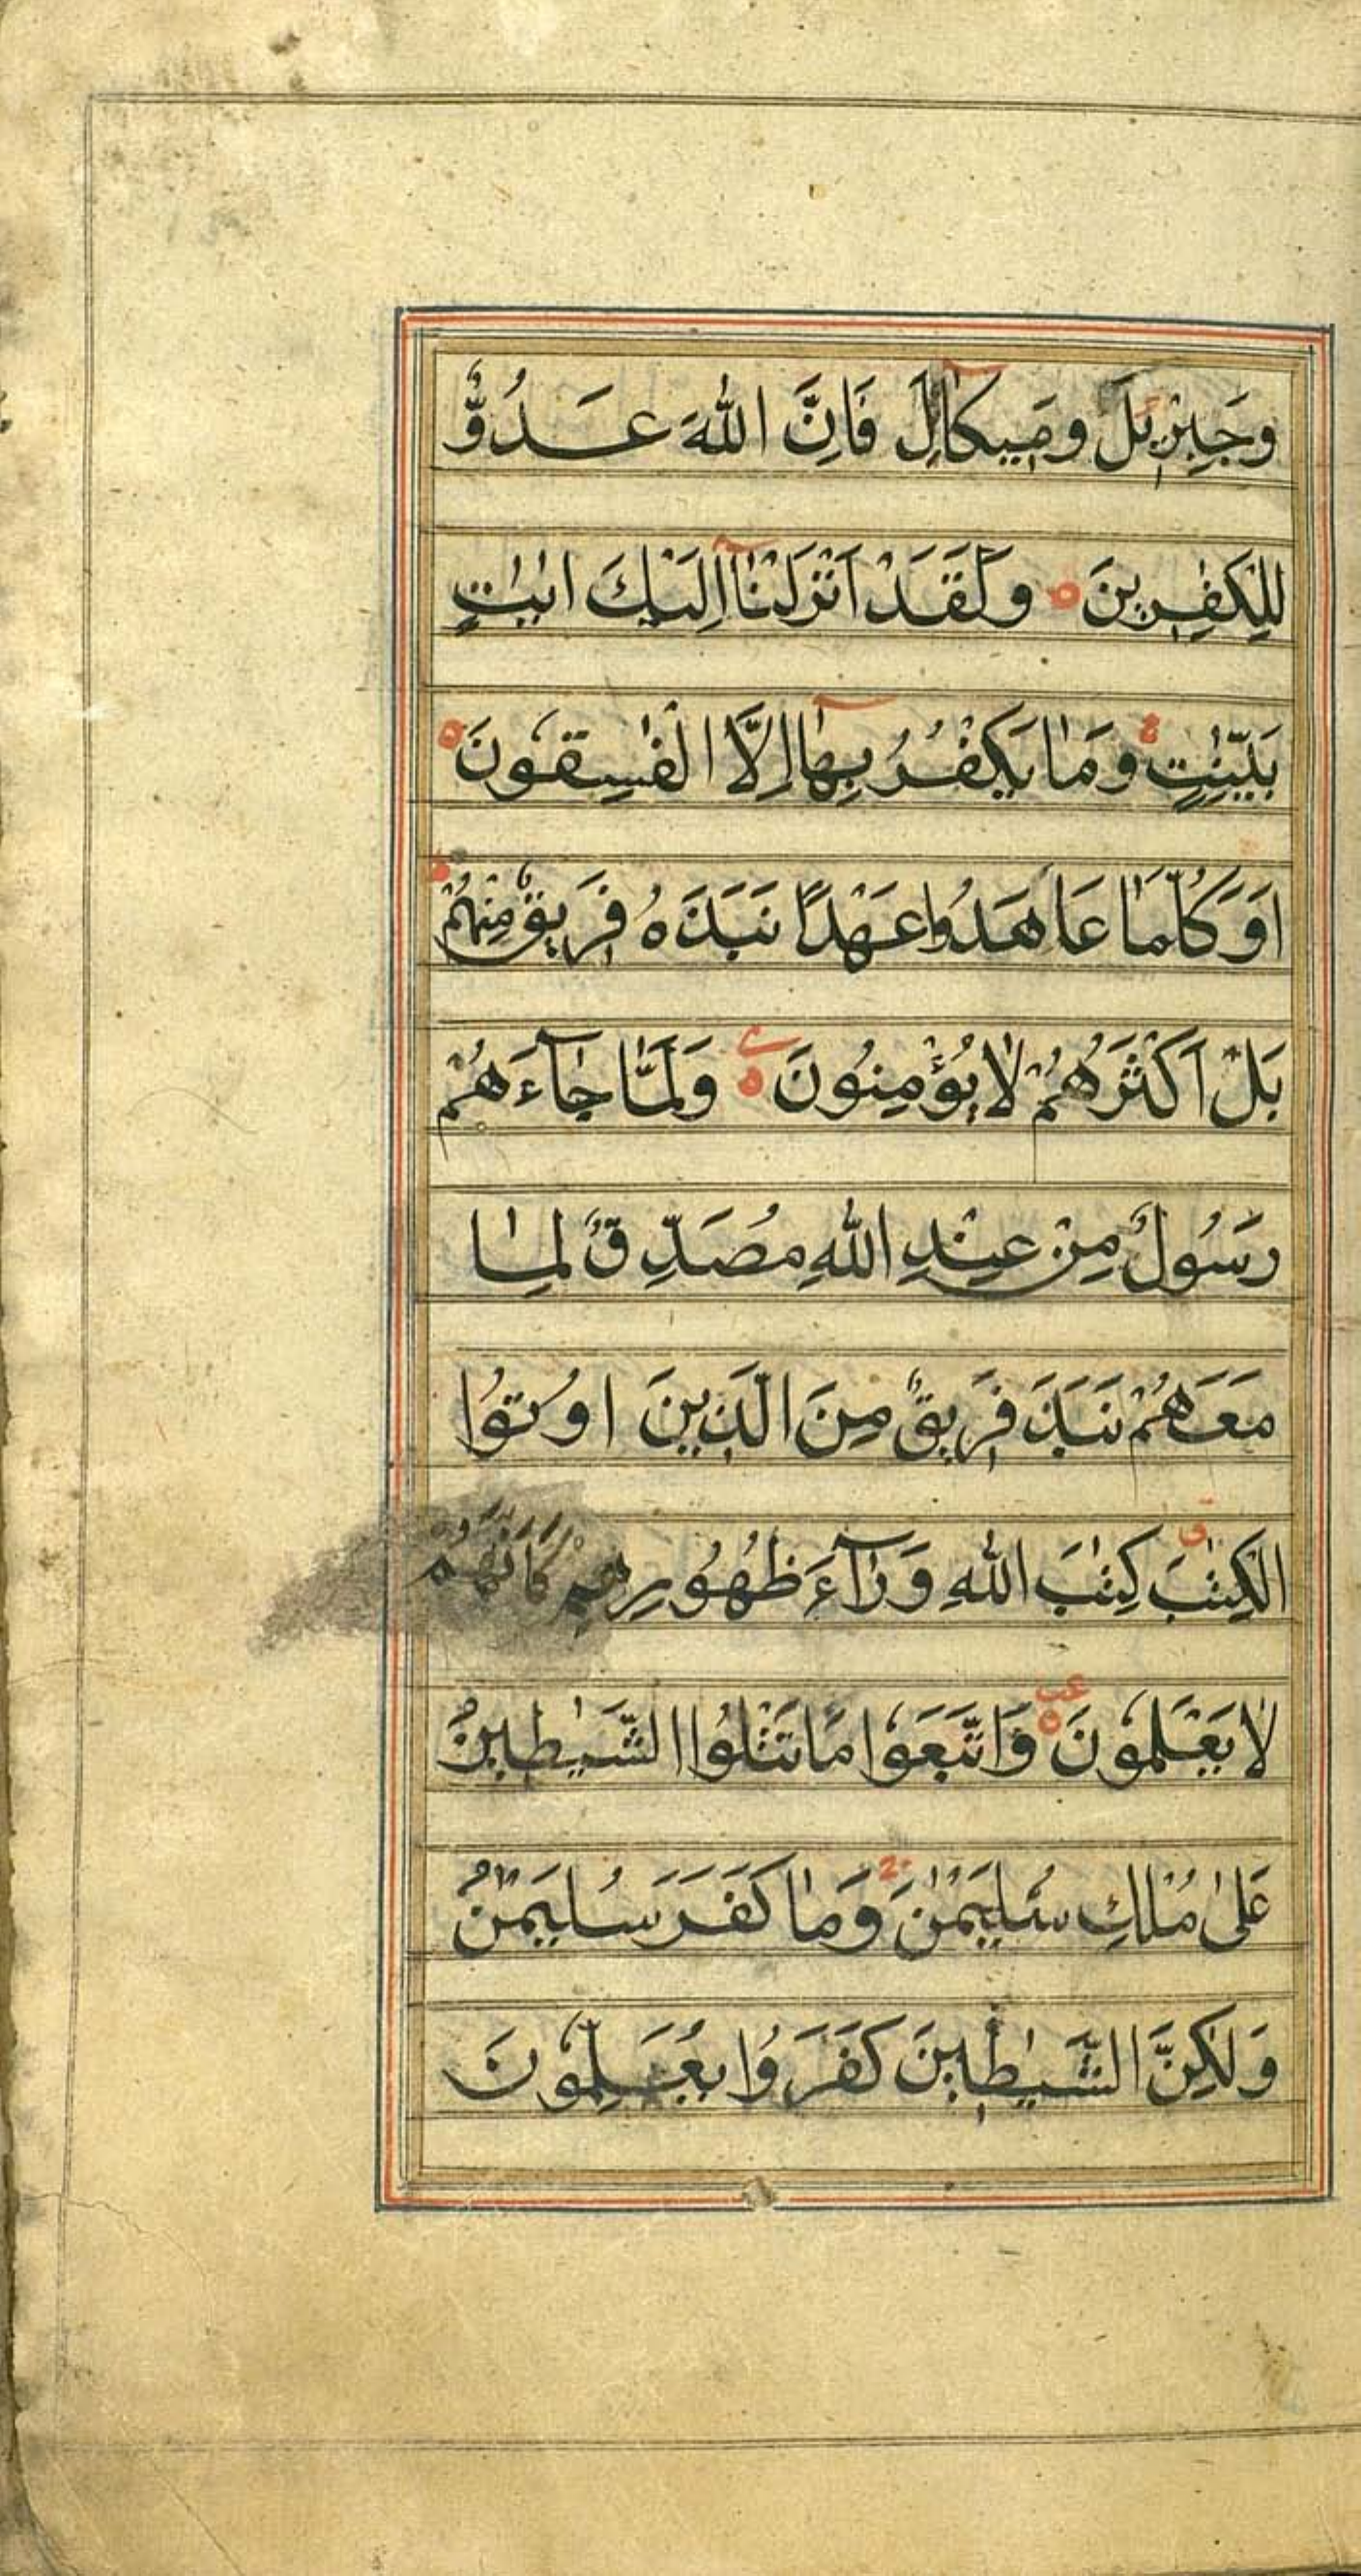 وَجِبْرِيلَ وَمِيكَالَ فَاِنَّ اللّٰهَ عَدُوٌّ
لِلْكٰفِرِينَ ه وَلَقَدْ اَنْزَلْنَآ اِلَيْكَ اٰيٰتٍ
بَيِّنٰتٍ وَمَا يَكْفُرُ بِهَآ اِلَّا الْفٰسِقُونَ ه
اَوَكُلَّمَا عَاهَدُوا عَهْدًا نَبَذَهُ فَرِيقٌ مِنْهُمْ ط
بَلْ اَكْثَرُهُمْ لَا يُؤْمِنُونَ ه وَلَمَّا جَآءَهُمْ
رَسُولٌ مِنْ عِنْدِ اللّٰهِ مُصَدِّقٌ لِمَا
مَعَهُمْ نَبَذَ فَرِيقٌ مِنَ الَّذِينَ اُوتُوا
الْكِتٰبَ كِتٰبَ اللّٰهِ وَرَآءَ ظُهُورِهِمْ كَاَنَّهُمْ
لَا يَعْلَمُونَ ه وَاتَّبَعُوا مَا تَتْلُوا الشَّيٰطِينُ
عَلٰى مُلْكِ سُلَيْمٰنَ وَمَا كَفَرَ سُلَيْمٰنُ
وَلٰكِنَّ الشَّيٰطِينَ كَفَرُوا يُعَلِّمُونَ